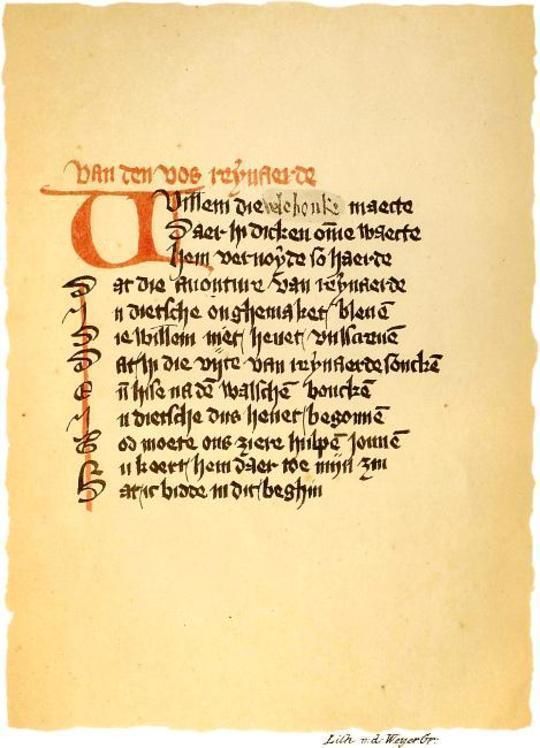 Van den vos reynaerde
Willem die vele bouke maecte
Daer hi dicken om̄e waecte
hem vernoyde so haerde
Dat die auonture van reynaerde
In dietsche onghemaket bleuē
Die willem niet heuet vulscreuē
Dat hi die vijte van reynaerde souckē
Eñ hise na dē walschē bouckē
In dietsche dus heuet begonnē
God moete ons ziere hulpē jonnē
Nu keert hem daer toe mijn zin
Dat ic bidde in dit beghin
Lith v.d. Weyer Gr.